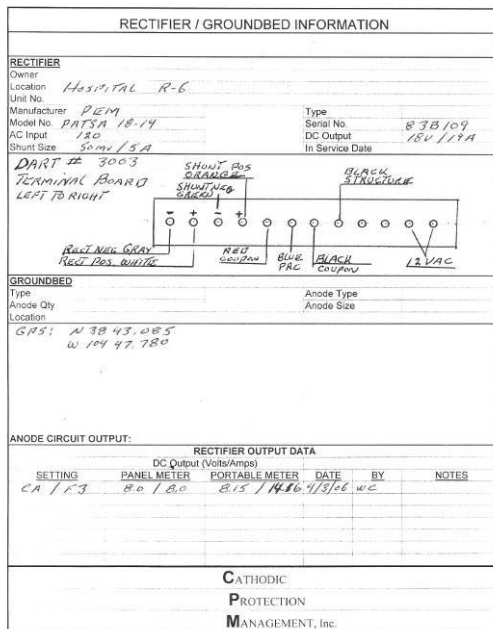 RECTIFIER / GROUNDBED INFORMATION
RECTIFIER
Owner
Location HOSPITAL R-6
Unit No.
Manufacturer PEM Type
Model No. PATSA 18-14 Serial No. 83B109
AC Input 120 DC Output 18V/14A
Shunt Size 50mv/5A In Service Date
DART # 3003
TERMINAL BOARD
LEFT TO RIGHT
SHUNT POS
ORANGE
SHUNT NEG
GREEN
BLACK
STRUCTURE
- + - +
RECT NEG GRAY
RECT POS WHITE
RED
COUPON
BLUE
BLACK
COUPON
12 VAC
GROUNDBED
Type Anode Type
Anode Qty Anode Size
Location
GPS: N 38 43.085
W 104 47.780
ANODE CIRCUIT OUTPUT:
RECTIFIER OUTPUT DATA
DC Output (Volts/Amps)
SETTING PANEL METER PORTABLE METER DATE BY NOTES
CA / F3 8.0 / 8.0 8.15 / 4/3/06 WC
CATHODIC
PROTECTION
MANAGEMENT, Inc.